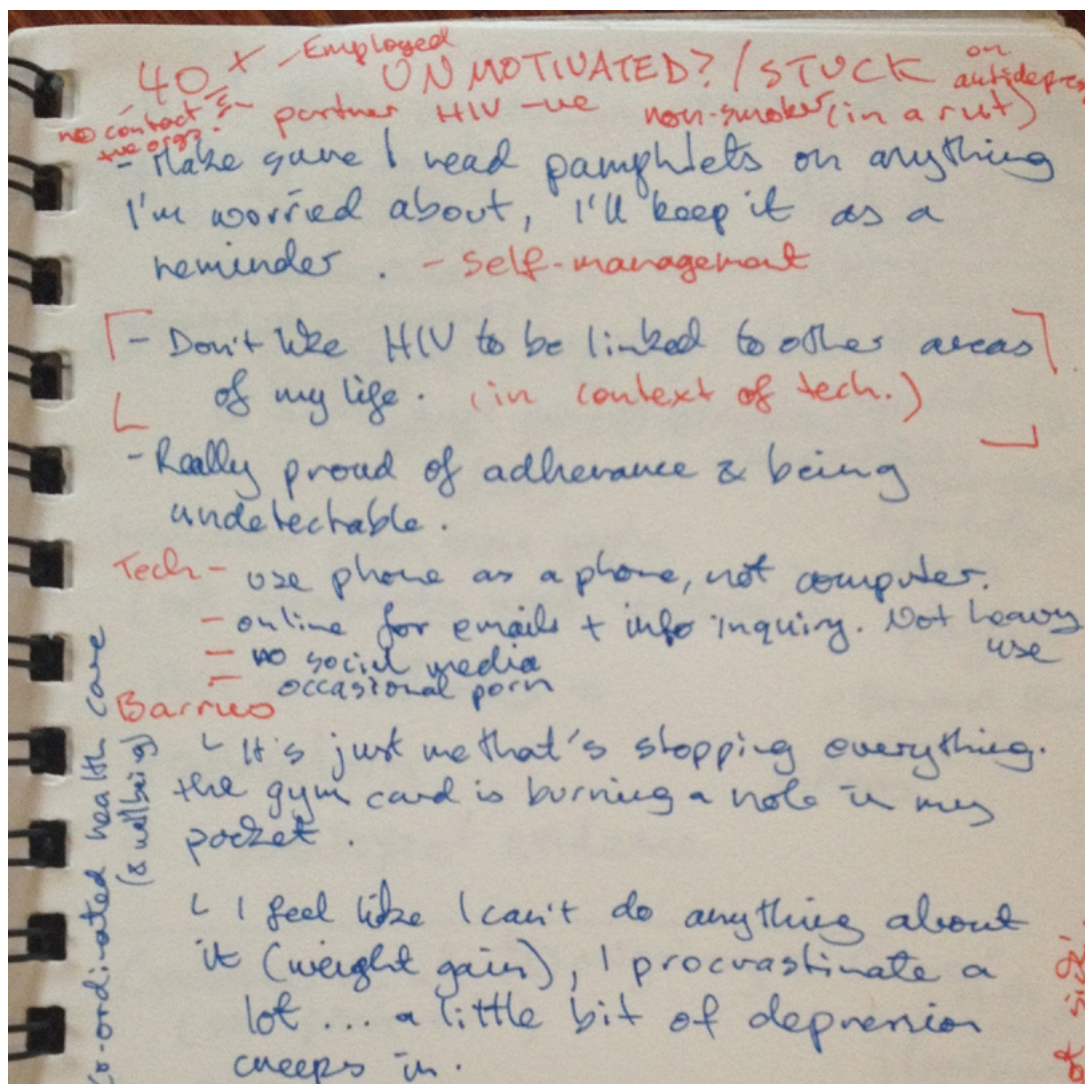 40+ - Employed UNMOTIVATED? / STUCK on
antidepres
no contact partner HIV -ve non-smoker (in a rut)
+ve orgs.
- Make sure I read pamphlets on anything
I'm worried about, I'll keep it as a
reminder. - self-management
- Don't like HIV to be linked to other areas
of my life. (in context of tech.)
- Really proud of adherance & being
undetectable.
Tech - use phone as a phone, not computer.
- online for emails + info inquiry. Not heavy
use
- no social media
- occasional porn
Barriers
It's just me that's stopping everything.
the gym card is burning a hole in my
pocket.
I feel like I can't do anything about
it (weight gain), I procrastinate a
lot ... a little bit of depression
creeps in.
Co-ordinated health care
(& wellbeing)